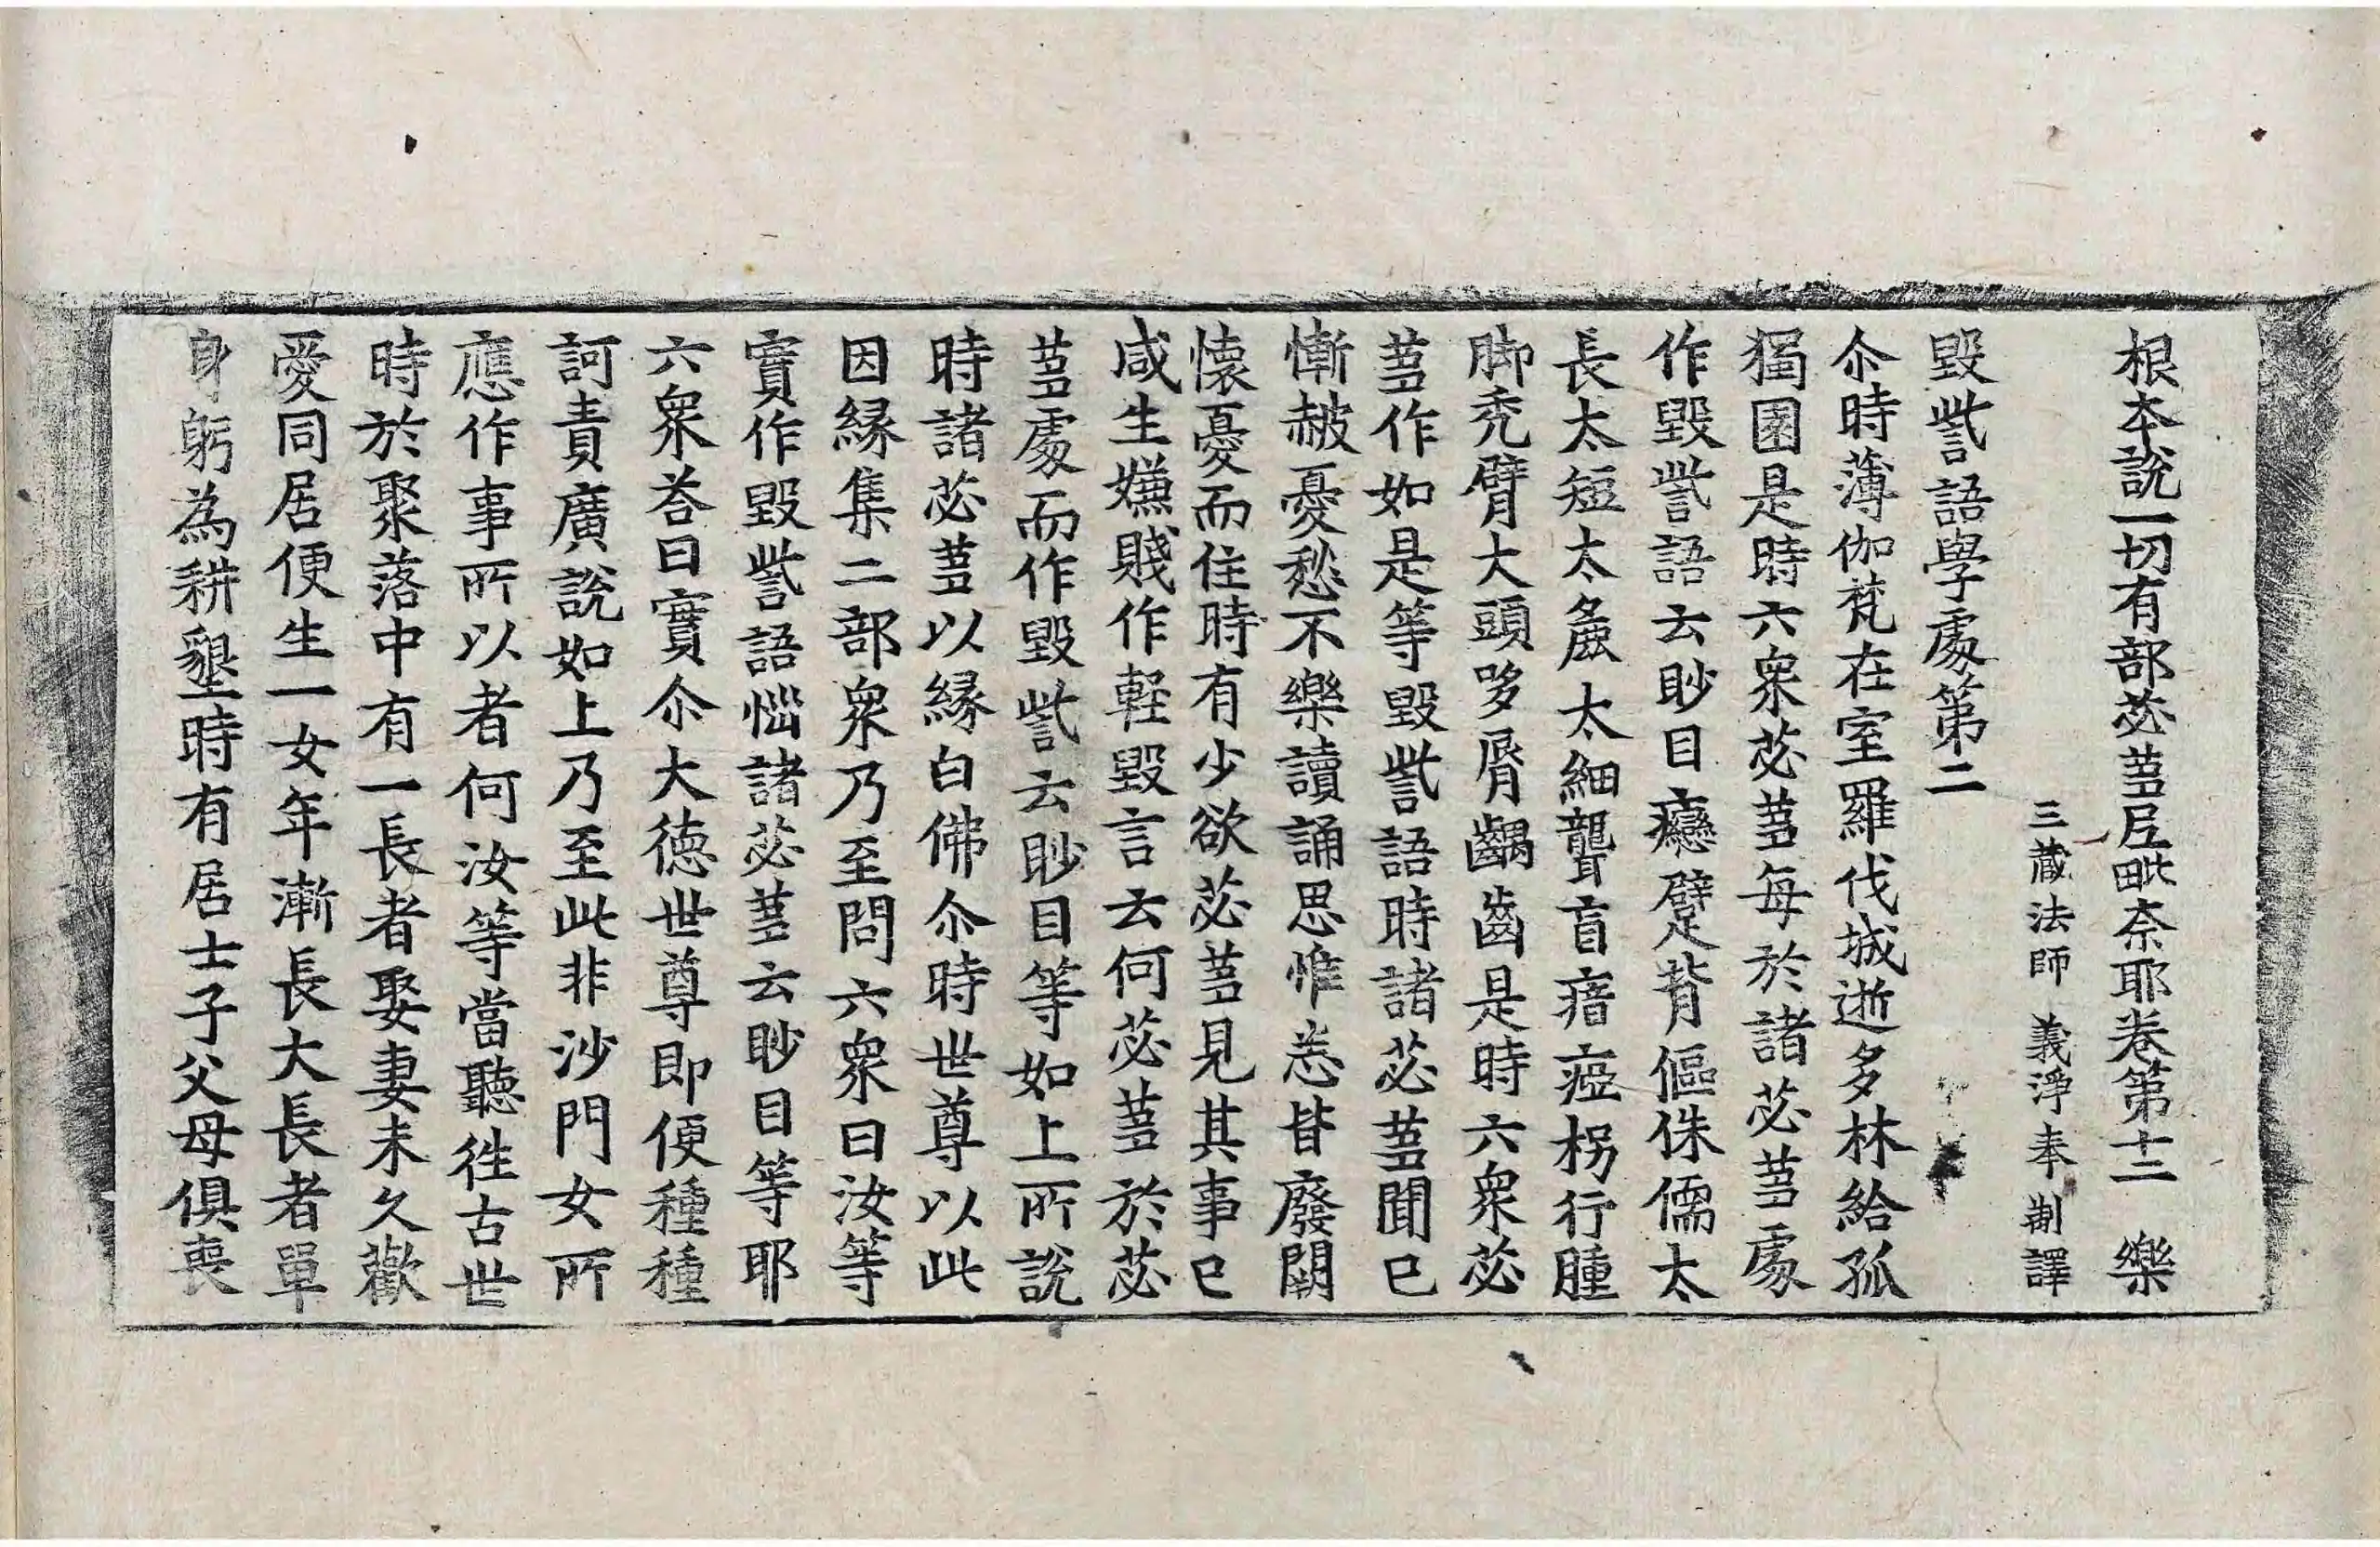 根本說一切有部苾蒭尼毗奈耶卷第十二 樂
三藏法師 義淨奉 制譯
毀訾語學處第二
尒時薄伽梵在室羅伐城逝多林給孤
獨園是時六衆苾蒭每於諸苾蒭處
作毀訾語云眇目癮躄背傴侏儒太
長太短太麁太細聾盲瘖瘂枴行腫
脚禿臂大頭哆脣齲齒是時六衆苾
蒭作如是等毀訾語時諸苾蒭聞已
慚赧憂愁不樂讀誦思惟悉皆廢闕
懷憂而住時有少欲苾蒭見其事已
咸生嫌賤作輕毀言云何苾蒭於苾
蒭處而作毀訾云眇目等如上所說
時諸苾蒭以緣白佛尒時世尊以此
因緣集二部衆乃至問六衆曰汝等
實作毀訾語惱諸苾蒭云眇目等耶
六衆荅曰實尒大德世尊即便種種
訶責廣說如上乃至此非沙門女所
應作事所以者何汝等當聽徃古世
時於聚落中有一長者娶妻未久歡
愛同居便生一女年漸長大長者單
身躬為耕墾時有居士子父母俱喪